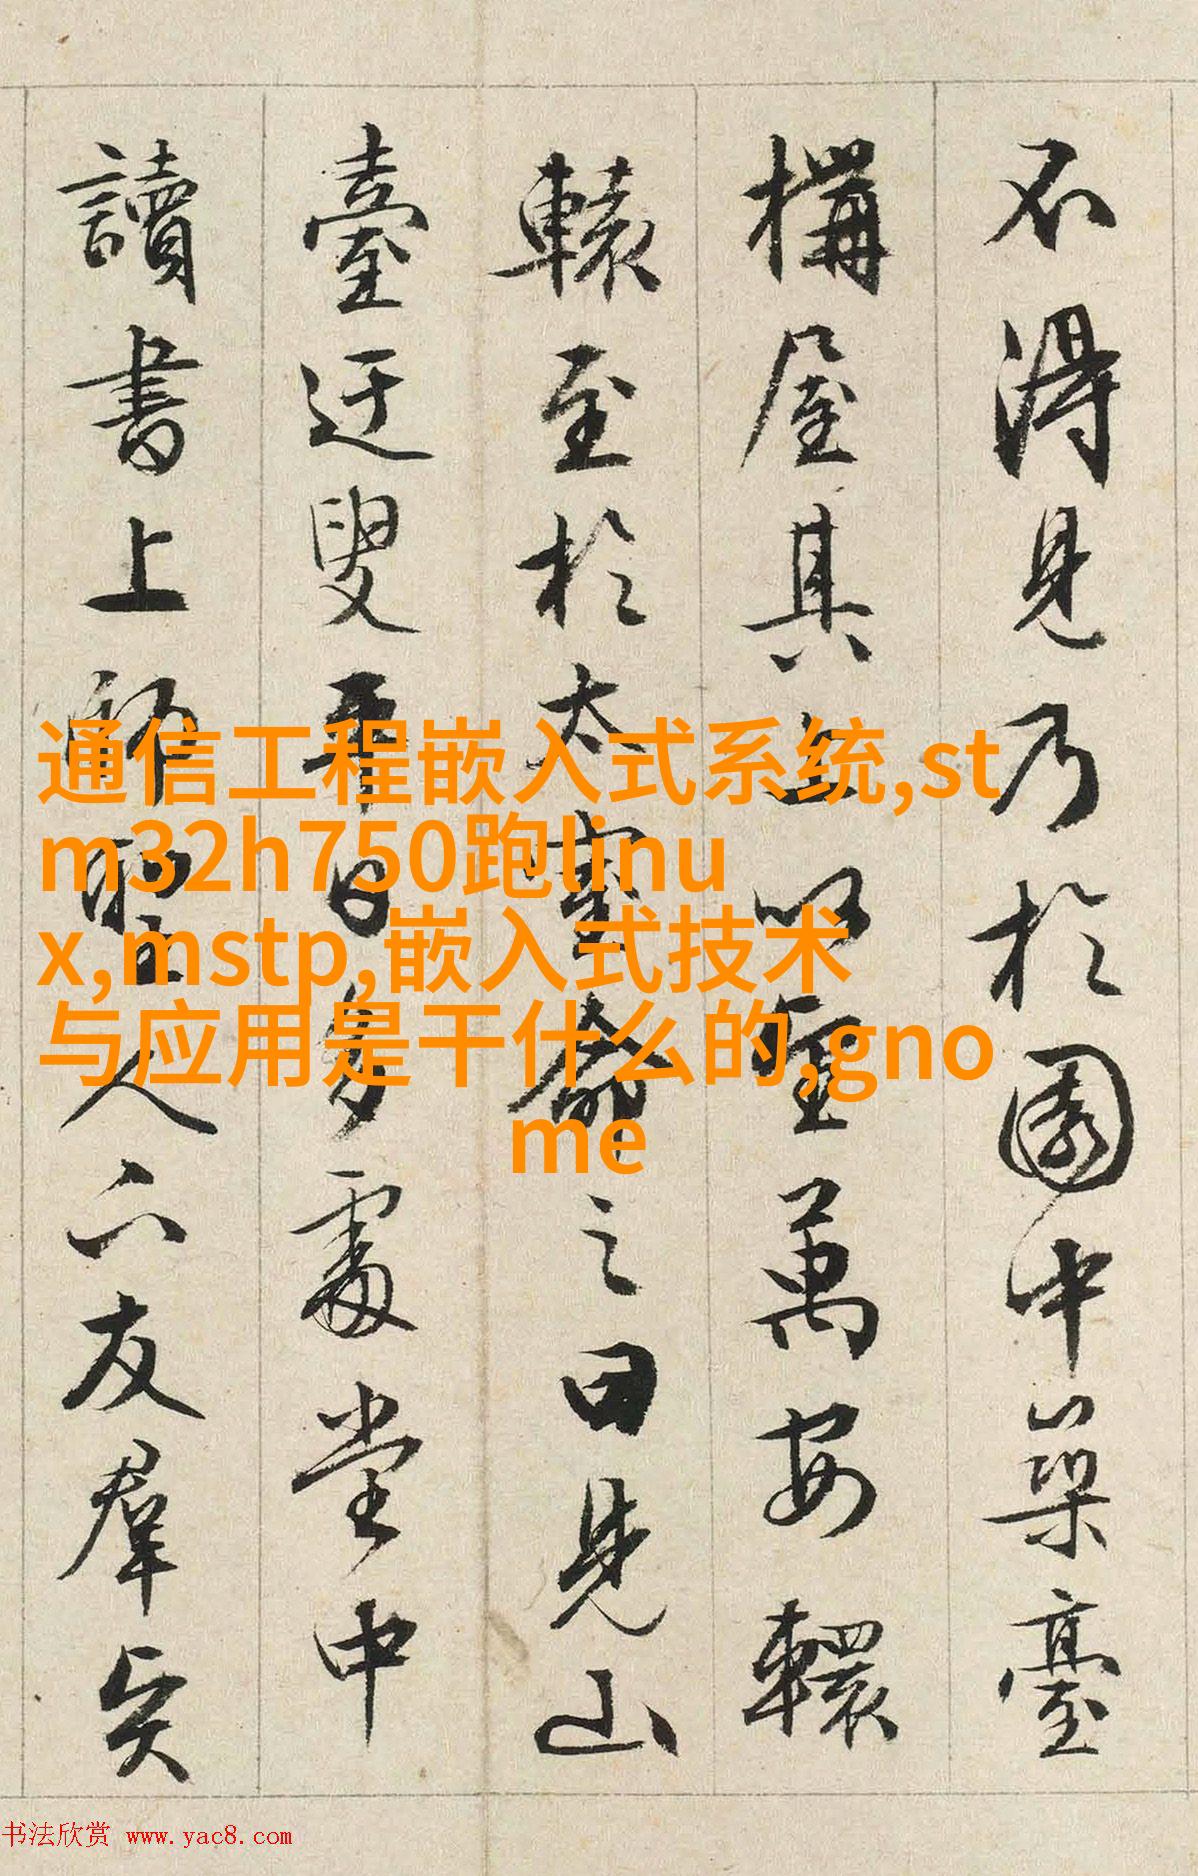 不得見乃於園中築臺
構屋其上以望萬安轘
轅至於太室命之曰見山
臺迂叟平日多處堂中
讀書上師聖人下友羣賢
通信工程嵌入式系统,st
m32h750跑linu
x,mstp,嵌入式技术
与应用是干什么的,gno
me
书法欣赏 www.yac8.com